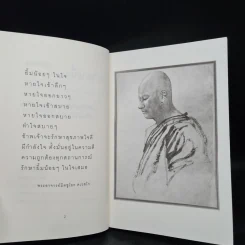 ยิ้มน้อยๆ ในใจ
หายใจเข้าลึกๆ
หายใจออกยาวๆ
หายใจเข้าสบาย
หายใจออกสบาย
ทำใจสบายๆ
ข้าพเจ้าจะรักษาสุขภาพใจดี
มีกำลังใจ ตั้งมั่นอยู่ในความดี
ความถูกต้องทุกสถานการณ์
รักษายิ้มน้อยๆ ในใจเสมอ